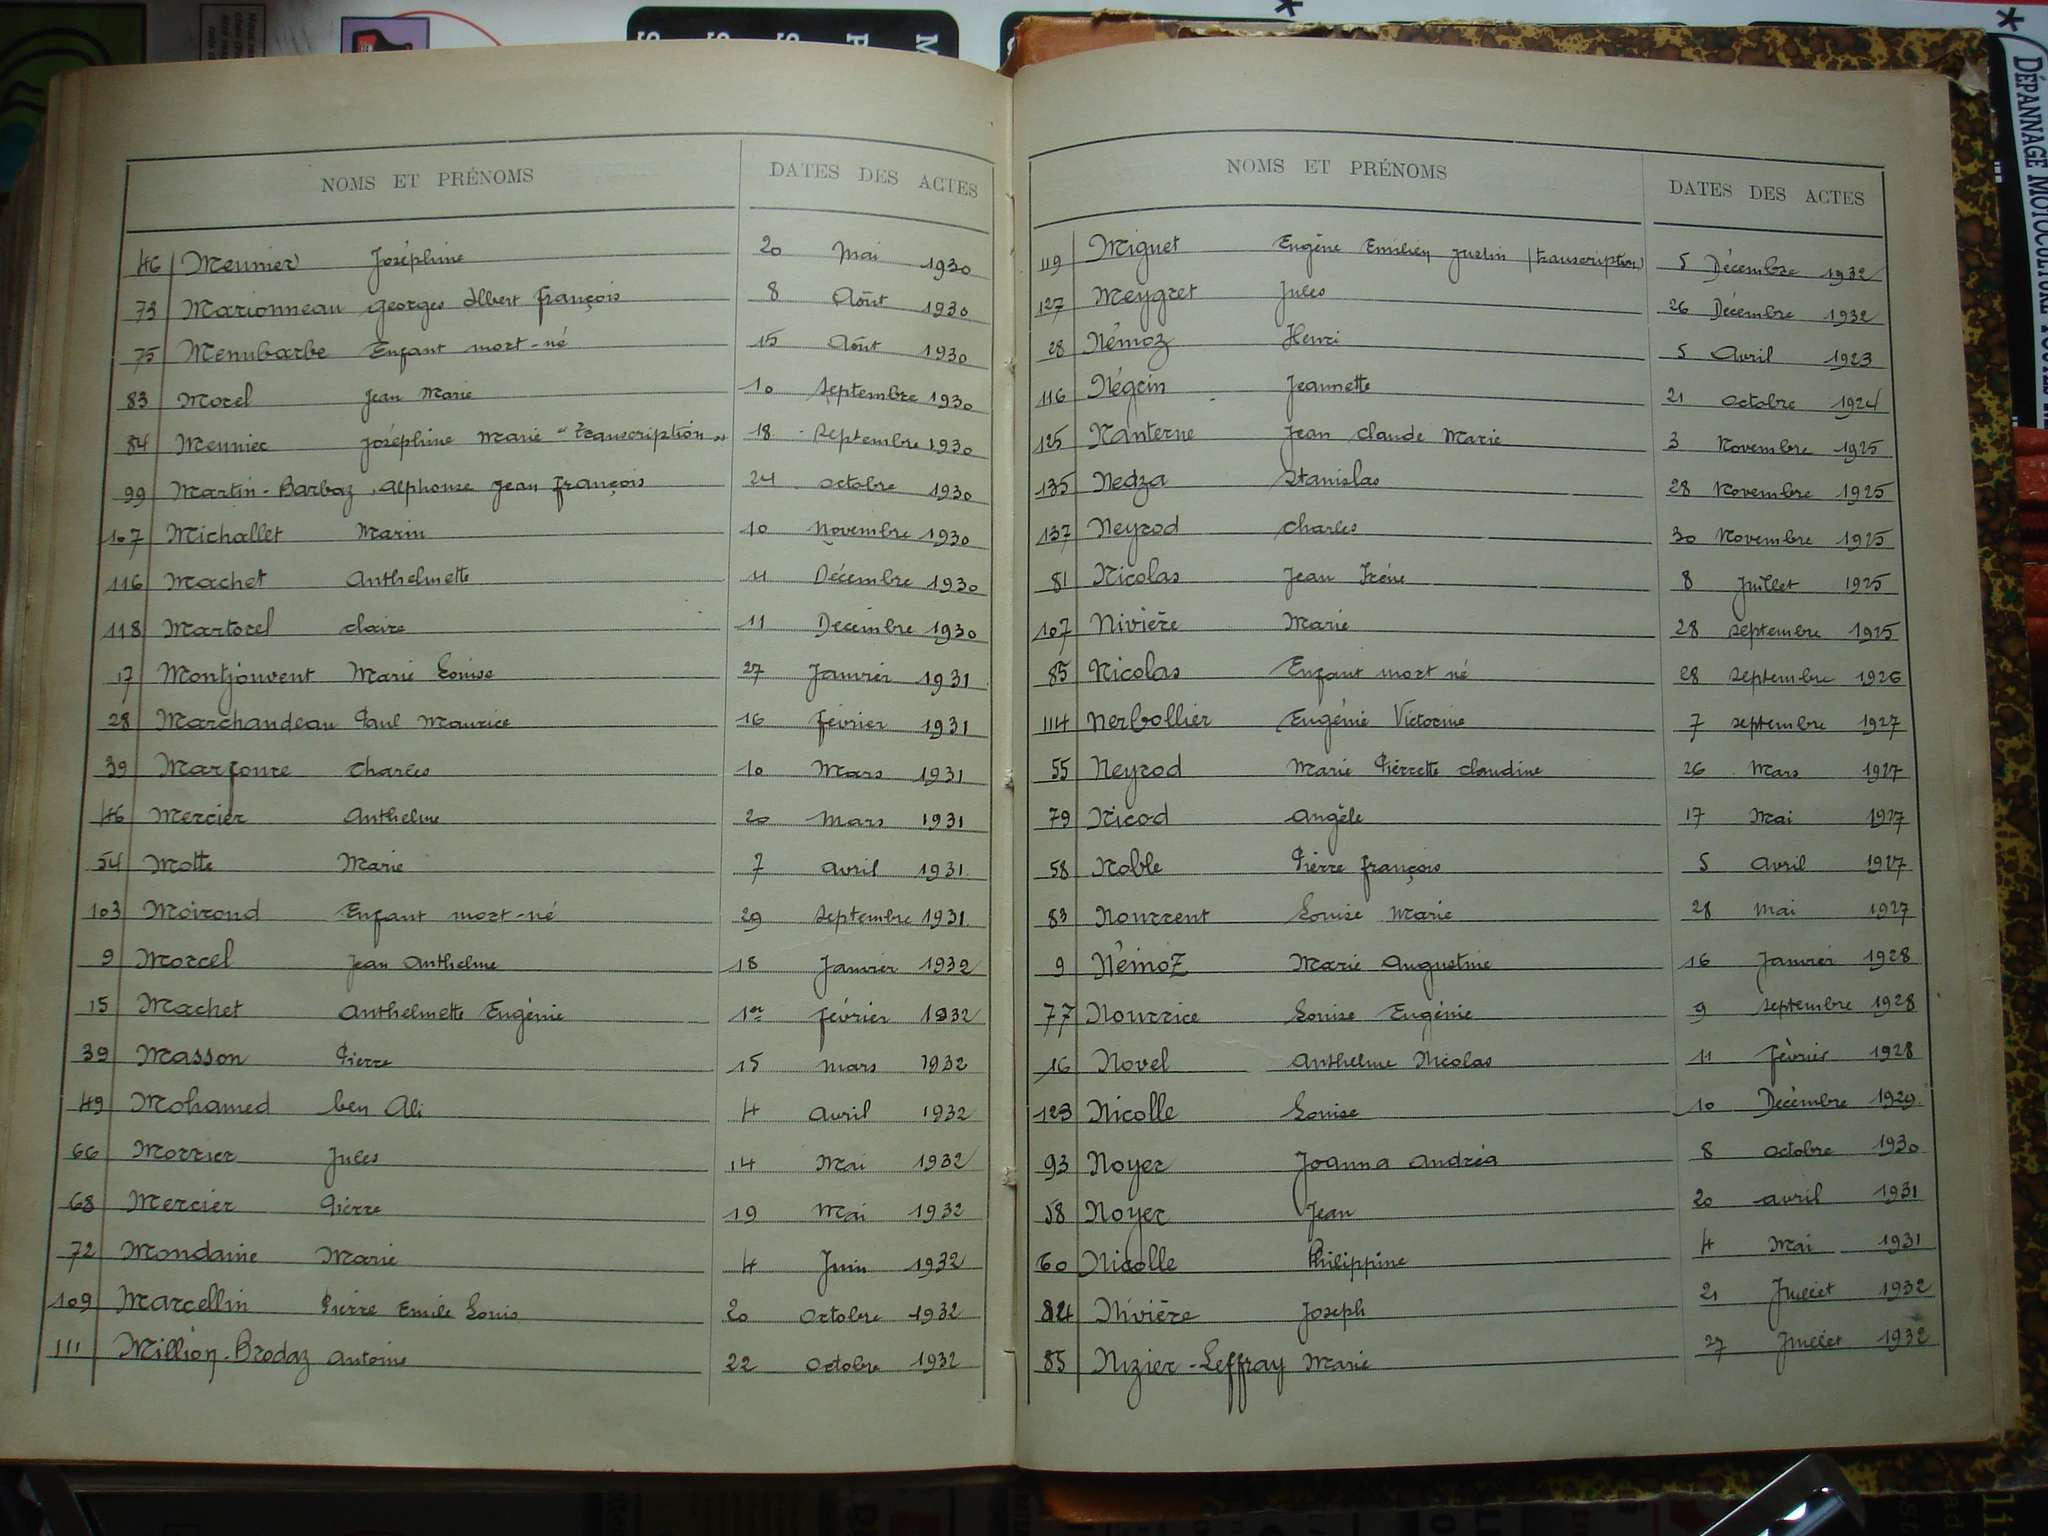 DÉPANNAGE MOTOCULTURE
NOMS ET PRÉNOMS DATES DES ACTES
46 Meunier Joséphine 20 Mai 1930
73 Marionneau Georges Albert François 8 Août 1930
75 Menubarbe Enfant mort-né 15 Août 1930
83 Morel Jean Marie 10 Septembre 1930
84 Meunier Joséphine Marie "transcription" 18 Septembre 1930
99 Martin-Barbaz Alphonse Jean François 24 octobre 1930
107 Michallet Marin 10 Novembre 1930
116 Machet Anthelmette 11 Décembre 1930
118 Martorel Claire 11 Décembre 1930
17 Montjouvent Marie Louise 27 Janvier 1931
28 Marchandeau Paul Maurice 16 février 1931
39 Marfoure Charles 10 Mars 1931
46 Mercier Anthelme 20 Mars 1931
54 Motte Marie 7 avril 1931
103 Moiroud Enfant mort-né 29 Septembre 1931
9 Morcel Jean Anthelme 18 Janvier 1932
15 Machet Anthelmette Eugénie 1er février 1932
39 Masson Pierre 15 mars 1932
49 Mohamed ben Ali 4 avril 1932
66 Morrier Jules 14 Mai 1932
68 Mercier Pierre 19 Mai 1932
72 Mondaine Marie 4 Juin 1932
109 Marcellin Pierre Emile Louis 20 Octobre 1932
111 Million-Brodaz Antoine 22 Octobre 1932
NOMS ET PRÉNOMS DATES DES ACTES
119 Miguet Eugène Emilien Justin (transcription) 5 Décembre 1932
127 Meygret Jules 26 Décembre 1932
28 Némoz Henri 5 Avril 1923
116 Négrin Jeannette 21 octobre 1924
125 Nanterne Jean Claude Marie 3 Novembre 1925
135 Nedza Stanislas 28 Novembre 1925
137 Neyrod Charles 30 Novembre 1925
81 Nicolas Jean Irène 8 Juillet 1925
107 Nivière Marie 28 Septembre 1925
85 Nicolas Enfant mort né 28 Septembre 1926
114 Nerbollier Eugénie Victorine 7 septembre 1927
55 Neyrod Marie Pierrette Claudine 26 Mars 1927
79 Nicod Angèle 17 Mai 1927
58 Noble Pierre François 5 Avril 1927
83 Nourrent Louise Marie 28 Mai 1927
9 Némoz Marie Augustine 16 Janvier 1928
77 Nourrice Louise Eugénie 9 Septembre 1928
16 Novel Anthelme Nicolas 11 Février 1928
123 Nicolle Louise 10 Décembre 1929
93 Noyer Joanna Andréa 8 Octobre 1930
58 Noyer Jean 20 avril 1931
60 Nicolle Philippine 4 Mai 1931
84 Nivière Joseph 21 Juillet 1932
85 Nizier-Leffray Marie 27 Juillet 1932